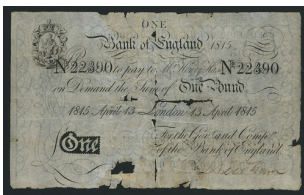 ONE
Bank of England 1815
No 22390 to pay to Mr Hen Hase No 22390
on Demand the Sum of One Pound
1815 April 13 London 13 April 1815
For the Govr and Compa
of the Bank of England
One